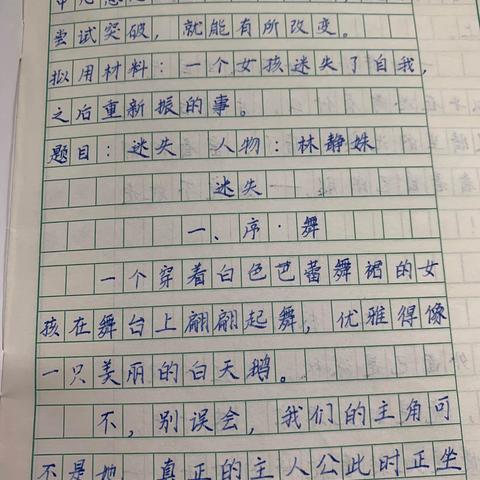 尝试突破，就能有所改变。
拟用材料：一个女孩迷失了自我，
之后重新振的事。
题目：迷失　人物：林静姝
迷失
一、序·舞
一个穿着白色芭蕾舞裙的女
孩在舞台上翩翩起舞，优雅得像
一只美丽的白天鹅。
不，别误会，我们的主角可
不是她，真正的主人公此时正坐